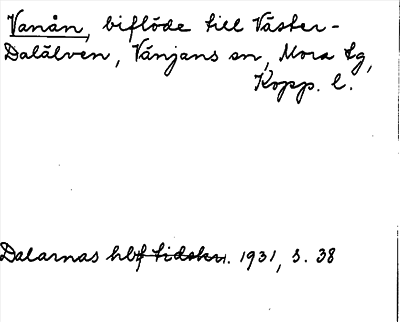 Vanån, biflöde till Väster-
Dalälven, Vänjans sn, Mora tg,
Kopp. l.
Dalarnas hbf tidskr. 1931, s. 38